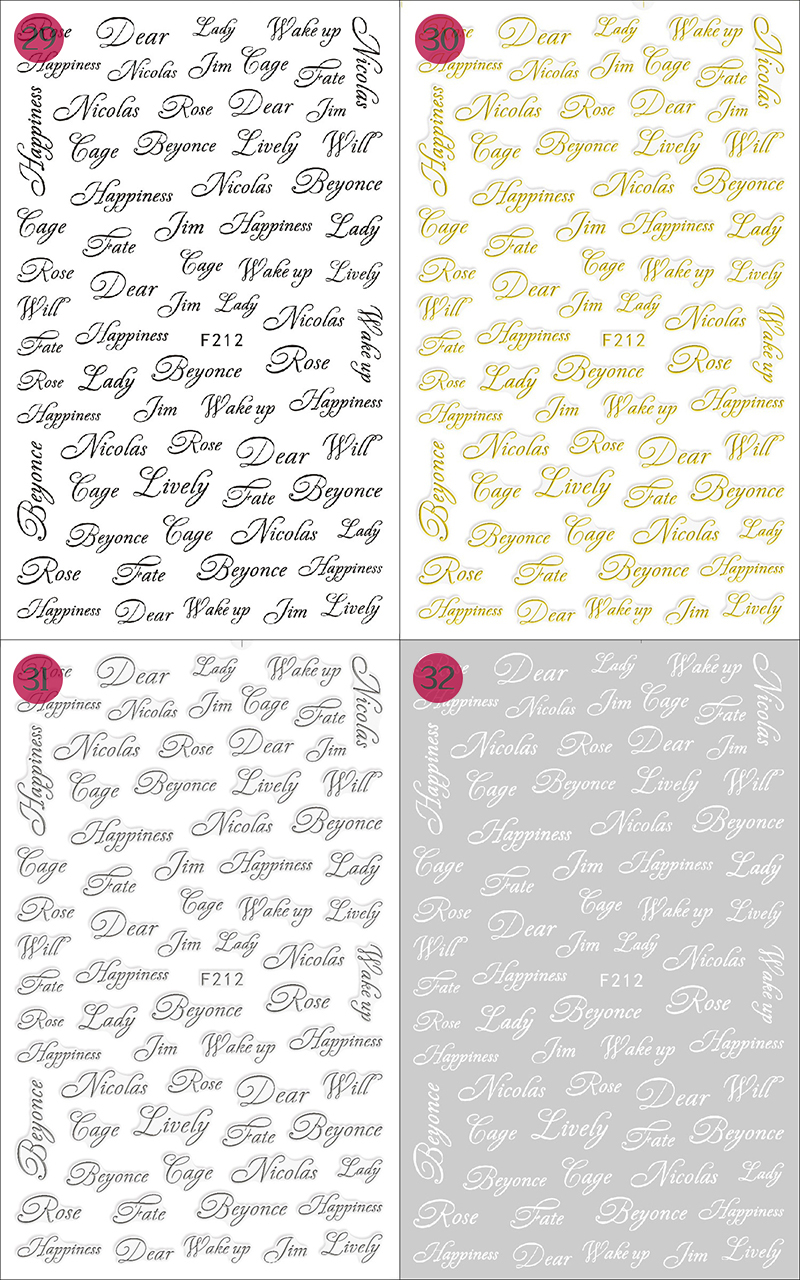 29
Rose Dear Lady Wake up Nicolas
Happiness Nicolas Jim Cage Fate
Happiness Nicolas Rose Dear Jim
Cage Beyonce Lively Will
Happiness Nicolas Beyonce
Cage Fate Jim Happiness Lady
Rose Dear Cage Wake up Lively
Will Jim Lady Nicolas Wake up
Fate Happiness F212
Rose Lady Beyonce Rose
Happiness Jim Wake up Happiness
Beyonce Nicolas Rose Dear Will
Cage Lively Fate Beyonce
Beyonce Cage Nicolas Lady
Rose Fate Beyonce Happiness
Happiness Dear Wake up Jim Lively
30
Rose Dear Lady Wake up Nicolas
Happiness Nicolas Jim Cage Fate
Happiness Nicolas Rose Dear Jim
Cage Beyonce Lively Will
Happiness Nicolas Beyonce
Cage Fate Jim Happiness Lady
Rose Dear Cage Wake up Lively
Will Jim Lady Nicolas Wake up
Fate Happiness F212
Rose Lady Beyonce Rose
Happiness Jim Wake up Happiness
Beyonce Nicolas Rose Dear Will
Cage Lively Fate Beyonce
Beyonce Cage Nicolas Lady
Rose Fate Beyonce Happiness
Happiness Dear Wake up Jim Lively
31
Rose Dear Lady Wake up Nicolas
Happiness Nicolas Jim Cage Fate
Happiness Nicolas Rose Dear Jim
Cage Beyonce Lively Will
Happiness Nicolas Beyonce
Cage Fate Jim Happiness Lady
Rose Dear Cage Wake up Lively
Will Jim Lady Nicolas Wake up
Fate Happiness F212
Rose Lady Beyonce Rose
Happiness Jim Wake up Happiness
Beyonce Nicolas Rose Dear Will
Cage Lively Fate Beyonce
Beyonce Cage Nicolas Lady
Rose Fate Beyonce Happiness
Happiness Dear Wake up Jim Lively
32
Dear Lady Wake up Nicolas
Happiness Nicolas Jim Cage Fate
Happiness Nicolas Rose Dear Jim
Cage Beyonce Lively Will
Happiness Nicolas Beyonce
Cage Fate Jim Happiness Lady
Rose Dear Cage Wake up Lively
Will Jim Lady Nicolas Wake up
Fate Happiness F212
Rose Lady Beyonce Rose
Happiness Jim Wake up Happiness
Beyonce Nicolas Rose Dear Will
Cage Lively Fate Beyonce
Beyonce Cage Nicolas Lady
Rose Fate Beyonce Happiness
Happiness Dear Wake up Jim Lively